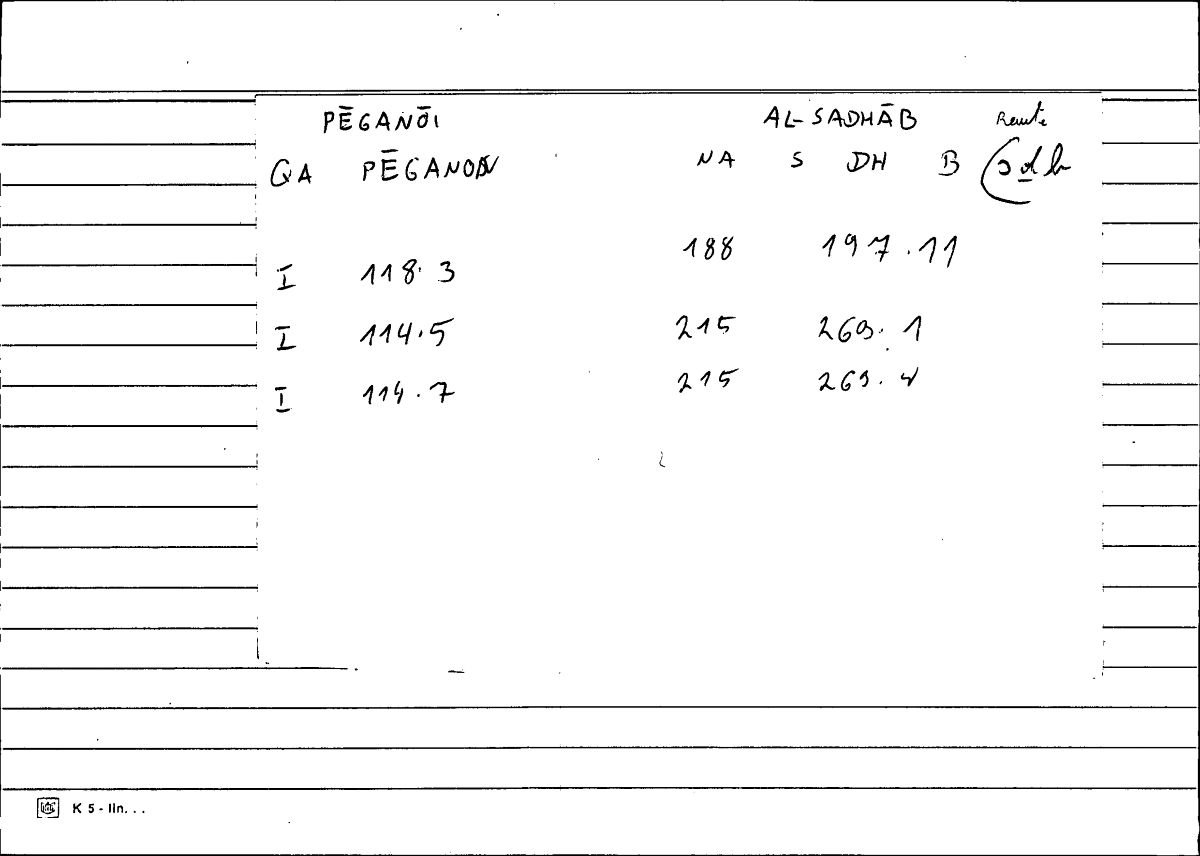 PĒGANŌI AL-SADHĀB Raute
QA PĒGANON NA S DH B (sḏb
188 197.11
I 118.3
I 114.5 215 269.1
I 114.7 215 269.4
K 5 - lin. . .